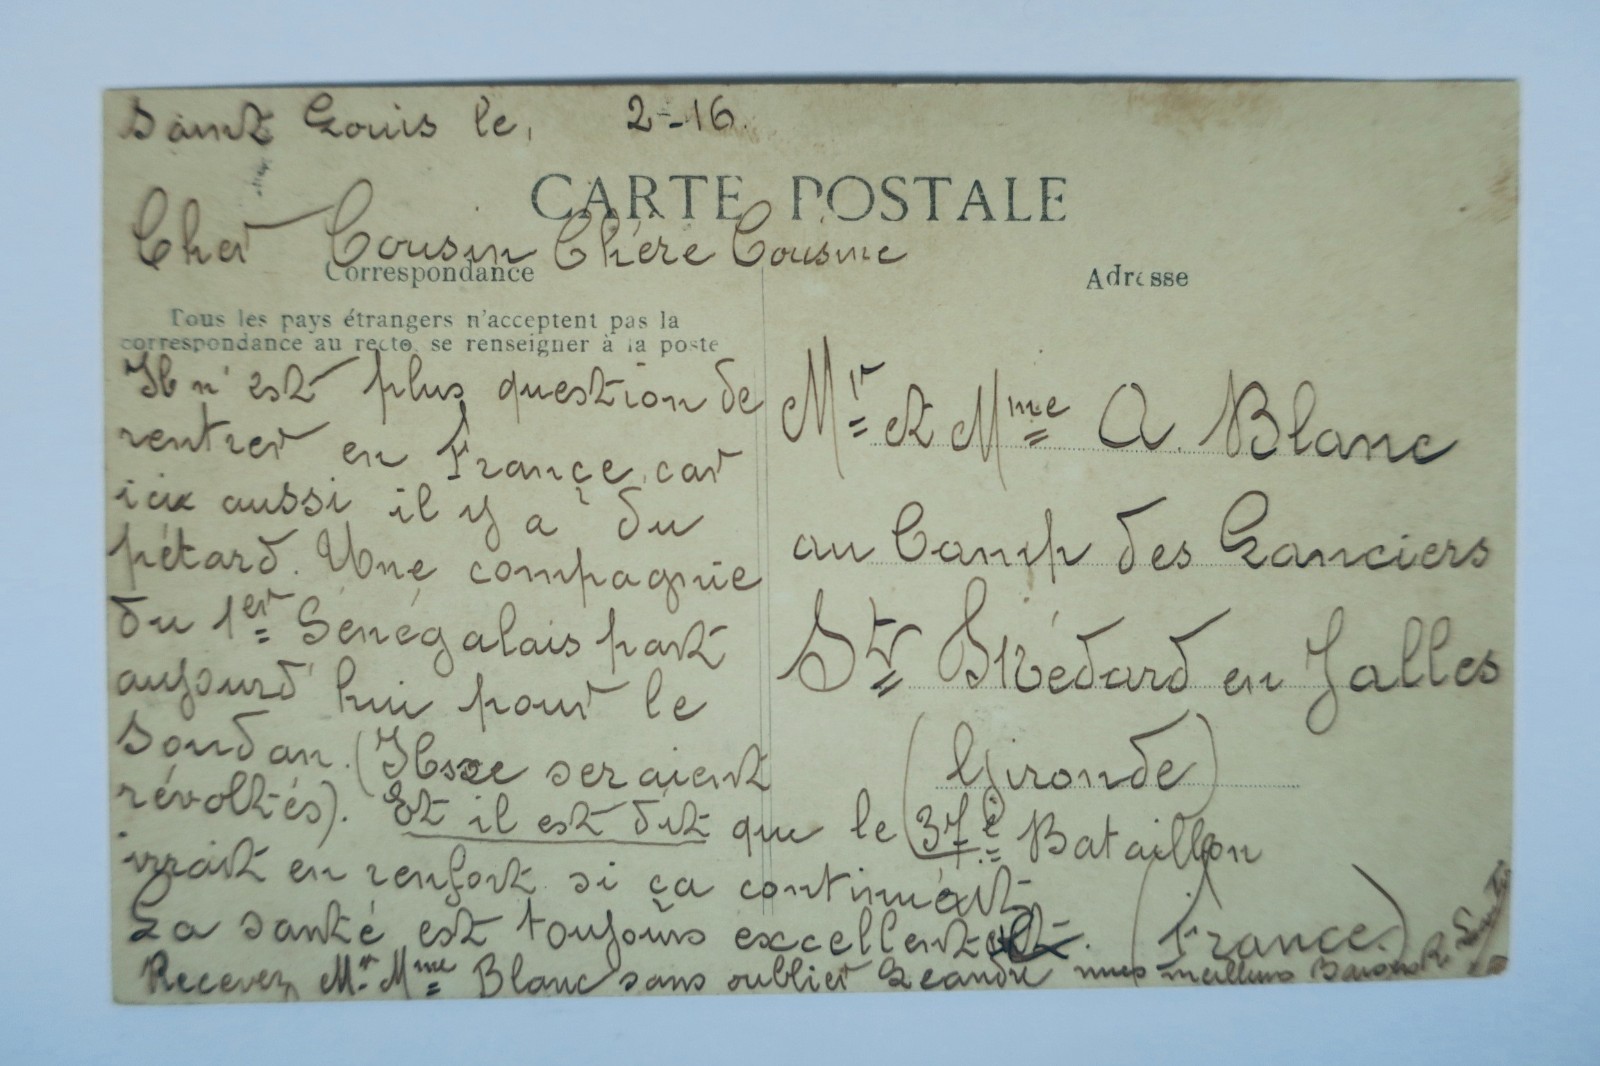 Saint Louis le, 2-16.
CARTE POSTALE
Cher Cousin Chère Cousine
Correspondance
Adresse
Tous les pays étrangers n'acceptent pas la
correspondance au recto, se renseigner à la poste
Il n'est plus question de
rentrer en France, car
ici aussi il y a du
pétard. Une compagnie
du 1er Sénégalais part
aujourd'hui pour le
Soudan. (Ils se seraient
révoltés). Et il est dit que le (37e Bataillon
irrait en renfort si ça continuait
La santé est toujours excellente.
Recevez Mr Mme Blanc sans oublier Léandre mes meilleurs Baisers R.
Mr et Mme A. Blanc
au Camp des Lanciers
St Médard en Jalles
(Gironde)
(France.)